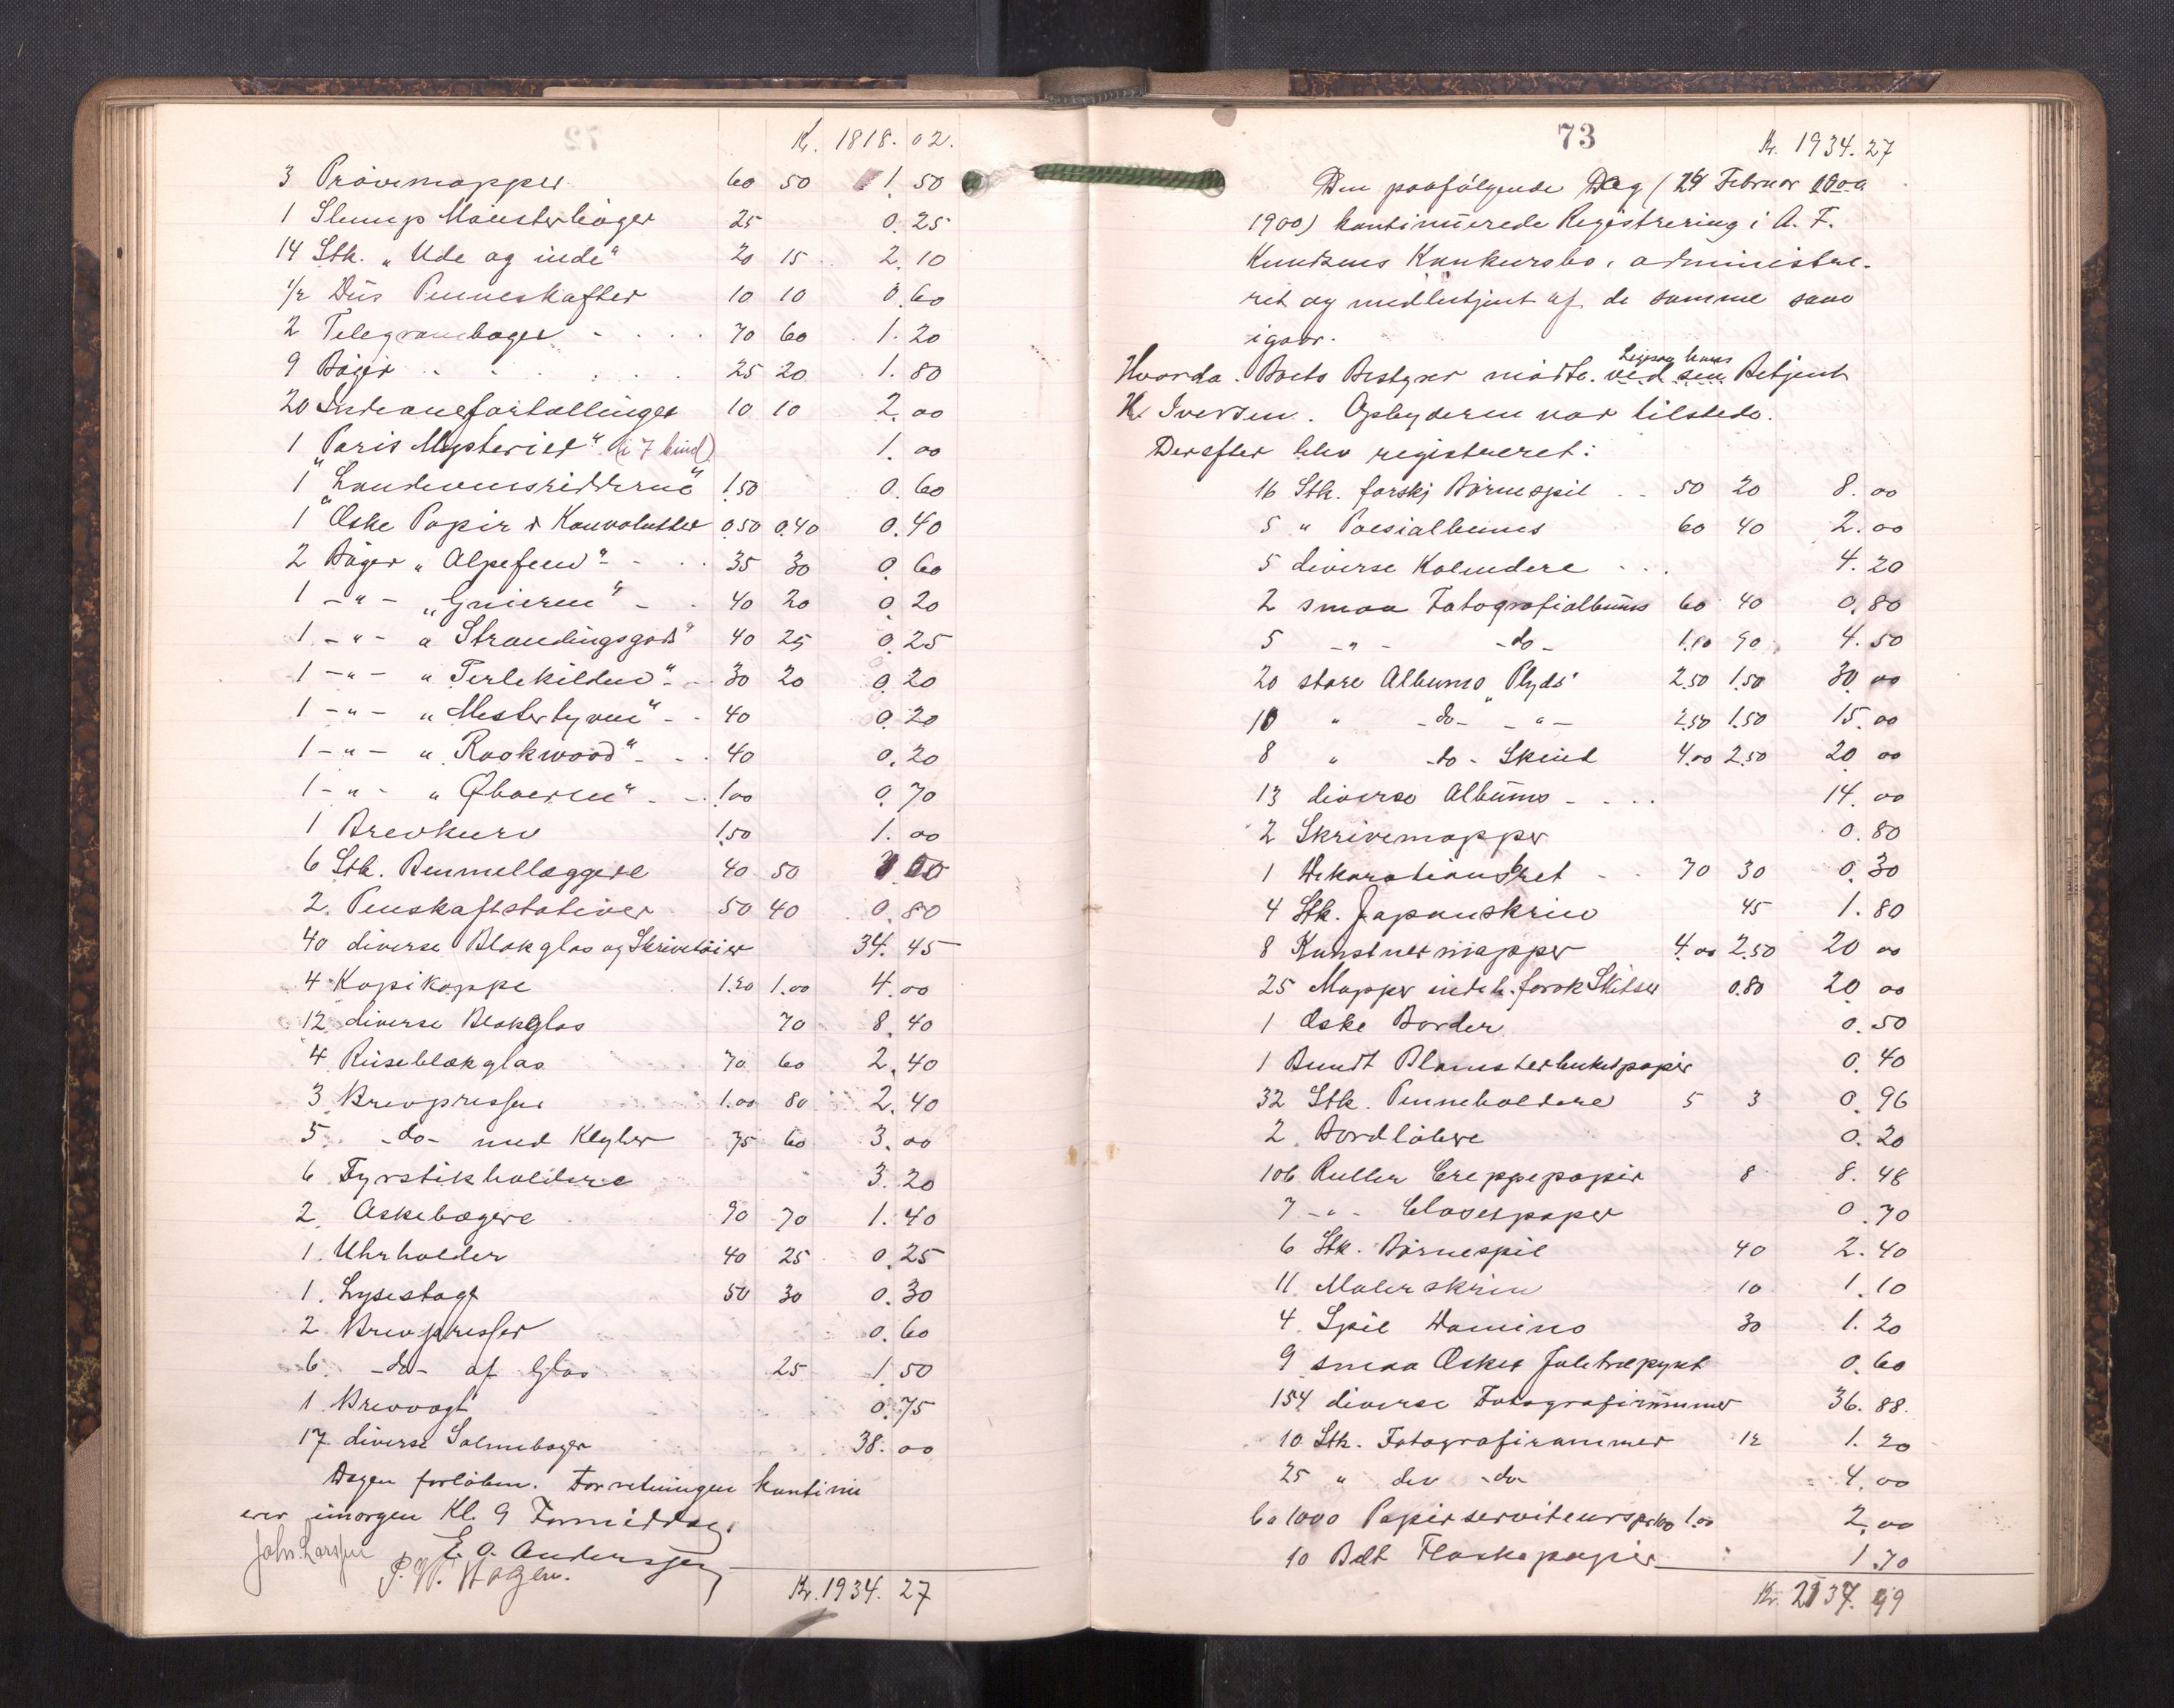 Kr. 1818.02.
3 Prøvemapper 60 50 1.50
1 Slump Mønsterbøger 25 0.25
14 Stk. "Ude og inde" 20 15 2.10
1/2 Dus Penneskafter 10 10 0.60
2 Telegrambøger 70 60 1.20
9 Bøger 25 20 1.80
20 Indianerfortællinger 10 10 2.00
1 "Paris Mysterier" (i 7 bind) 1.00
1 "Landeveisridderne" 1.50 0.60
1 Æske Papir & Konvolutter 0.50 0.40 0.40
2 Bøger "Alpefeen" 35 30 0.60
1 -"- "Gnieren" 40 20 0.20
1 -"- "Strandingsgods" 40 25 0.25
1 -"- "Perlekilden" 30 20 0.20
1 -"- "Mestertyven" 40 0.20
1 -"- "Rookwood" 40 0.20
1 -"- 1.00 0.70
1 Brevkurv 1.50 1.00
6 Stk. Pennellæggere 40 50
2. Penskaftstativer 50 40 0.80
40 diverse Blækglas og Skrivetøier 34.45
4 Kopikoppe 1.20 1.00 4.00
12 diverse Blækglas 70 8.40
4 Reiseblækglas 70 60 2.40
3 Brevpresser 1.00 80 2.40
5. -do- med Klyber 75 60 3.00
6 Fyrstikholdere 3.20
2. Askebægere 90 70 1.40
1. Uhrholder 40 25 0.25
1. Lysestage 50 30 0.30
2. Brevpresser 0.60
6. -do- af Glas 25 1.50
1 Brevvægt 0.75
17 diverse Salmebøger 38.00
Dagen forløben. Forretningen kontinu
erer imorgen Kl. 9 Formiddag.
Johs. Larssen E. O. Anderssen
P. W.
Kr. 1934.27
73
Kr. 1934.27
Den paafølgende Dag (24 Februar
1900) kontinuerede Registrering i A. F.
Knudsens Konkursbo, administre-
ret og medbetjent af de samme som
igaar.
Hvorda. Boets Bestyrer mødte. ved sin Betjent
H. Iversen. Opbyderen var tilstede.
Derefter blev registreret:
16 Stk. forskj Børnespil 50 20 8.00
5 " Poesialbums 60 40 2.00
5 diverse Kalendere 4.20
2 smaa Fotografialbums 60 40 0.80
5 -"- -do- 90 4.50
20 store Albums "Plyds" 2.50 1.50 30.00
10 " -do- -"- 2.50 1.50 15.00
8 " -do- Skind 4.00 2.50 20.00
13 diverse Albums 14.00
2 Skrivemapper 0.80
1 Dekorationsbret 70 30 0.30
4 Stk. Japanskrin 45 1.80
8 Kunstnermapper 4.00 2.50 20.00
25 Mapper indeh. forsk Skitser 0.80 20.00
1 Æske Border 0.50
1 Bundt Blomsterbuketpapir 0.40
32 Stk. Penneholdere 5 3 0.96
2. Bordløbere 0.20
106 Ruller Creppepapir 8 8.48
7 -"- Closetpaper 0.70
6 Stk. Børnespil 40 2.40
11 Malerskrin 10 1.10
4. Spil Domino 30 1.20
9 smaa Æsker Juletræpynt 0.60
154 diverse Fotografirammer 36.88.
10 Stk. Fotografirammer 12 1.20
25 " div -do- 4.00
ca 1000 Papirserviteurs pr100 1.00 2.00
10 Belt Flaskepapir 1.70
Kr. 2137.99